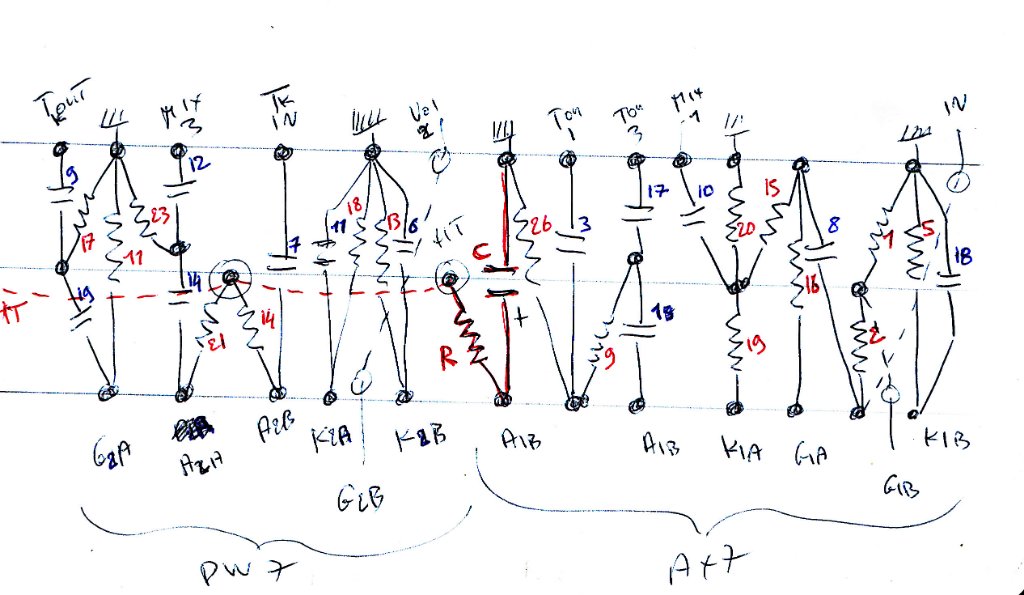 TK OUT
MIX 3
TK IN
Vol 2
Ton 1
Ton 3
MIX 1
IN
9
12
17
11
23
7
11
18
13
6
HT
C
26
3
17
10
15
20
8
1
5
18
19
14
HT
21
14
R
+
9
18
19
16
2
G2A
A2A
A2B
K2A
K2B
A1B
A1B
K1A
G1A
K1B
G2B
G1B
PW 7
AX7